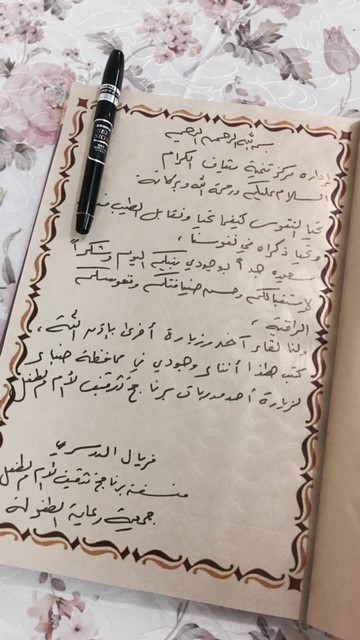 بسم الله الرحمن الرحيم
إدارة مركز تنمية ضياف الكرام
السلام عليكم ورحمة الله وبركاته
تحيا النفوس كيفما تحيا ونقابل الطيب
وتحيا ذكراه في نفوسنا ،
سعيده جداً بوجودي بينكم اليوم وشكراً
لاستقبالكم وحسن ضيافتكم ونفوسكم
الراقية ،
ولنا لقاء آخر وزيارة أخرى بإذن الله ،
كتب هذا أثناء وجودي في محافظة ضباء
لزيارة أحد مدربات برنامج تثقيف الأم والطفل
فريال الدوسري
منسقة برنامج تثقيف الأم والطفل
جمعية رعاية الطفولة